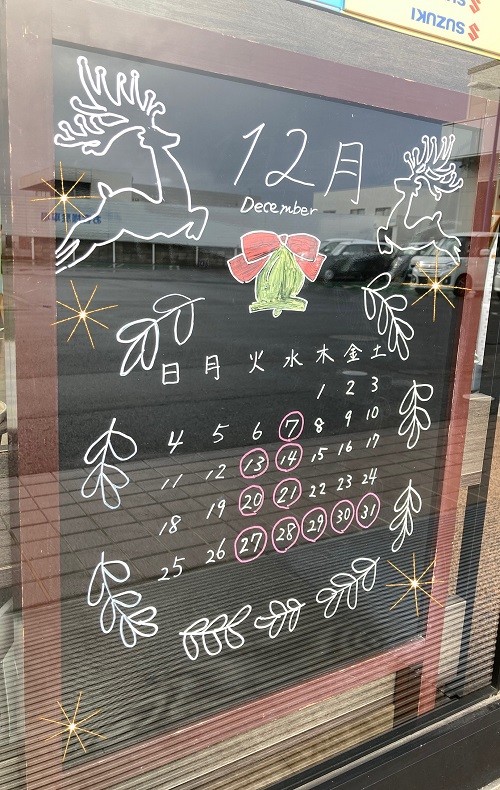 SUZUKI
12月
December
日 月 火 水 木 金 土
1 2 3
4 5 6 7 8 9 10
11 12 13 14 15 16 17
18 19 20 21 22 23 24
25 26 27 28 29 30 31